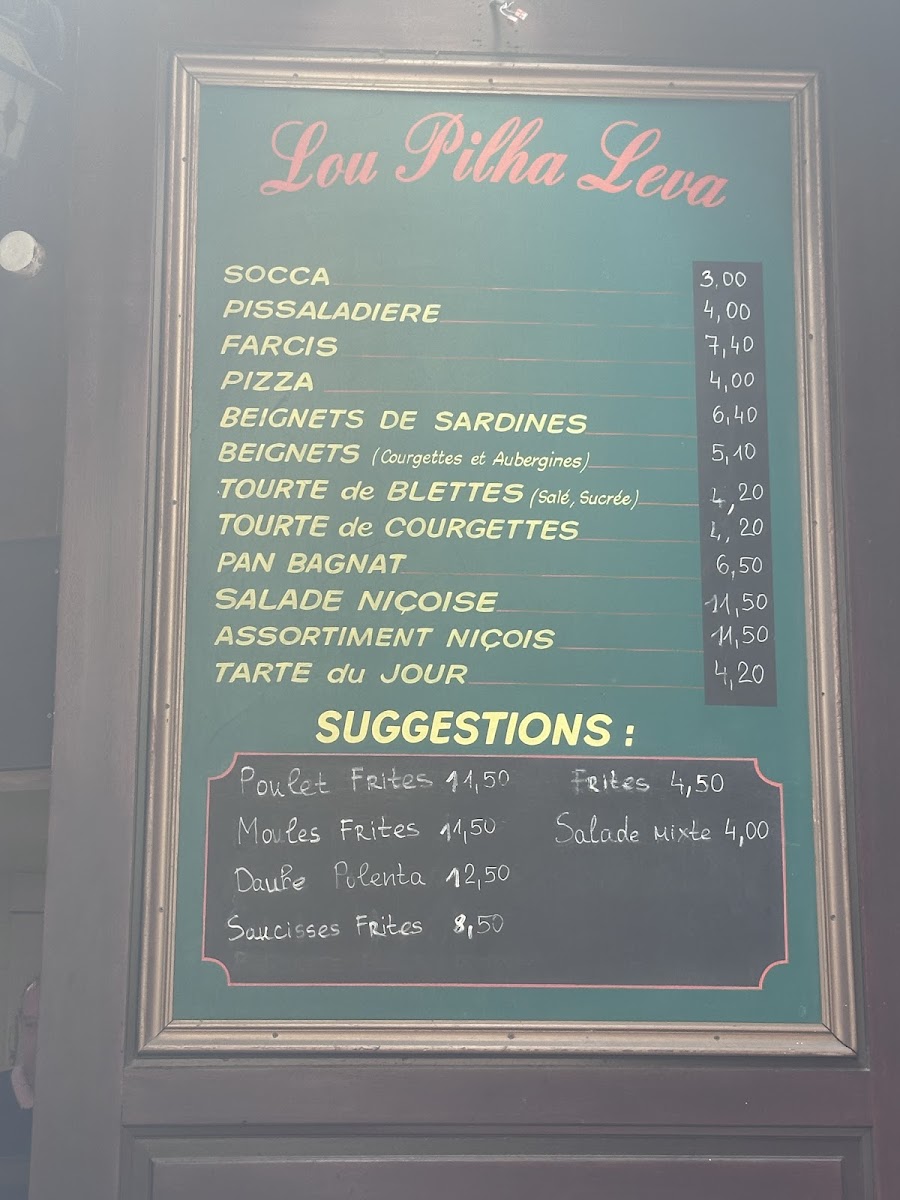 Lou Pilha Leva
SOCCA 3,00
PISSALADIERE 4,00
FARCIS 7,40
PIZZA 4,00
BEIGNETS DE SARDINES 6,40
BEIGNETS (Courgettes et Aubergines) 5,10
TOURTE de BLETTES (Salé, Sucrée) 4,20
TOURTE de COURGETTES 4,20
PAN BAGNAT 6,50
SALADE NIÇOISE 11,50
ASSORTIMENT NIÇOIS 11,50
TARTE du JOUR 4,20
SUGGESTIONS :
Poulet Frites 11,50 Frites 4,50
Moules Frites 11,50 Salade mixte 4,00
Daube Polenta 12,50
Saucisses Frites 8,50